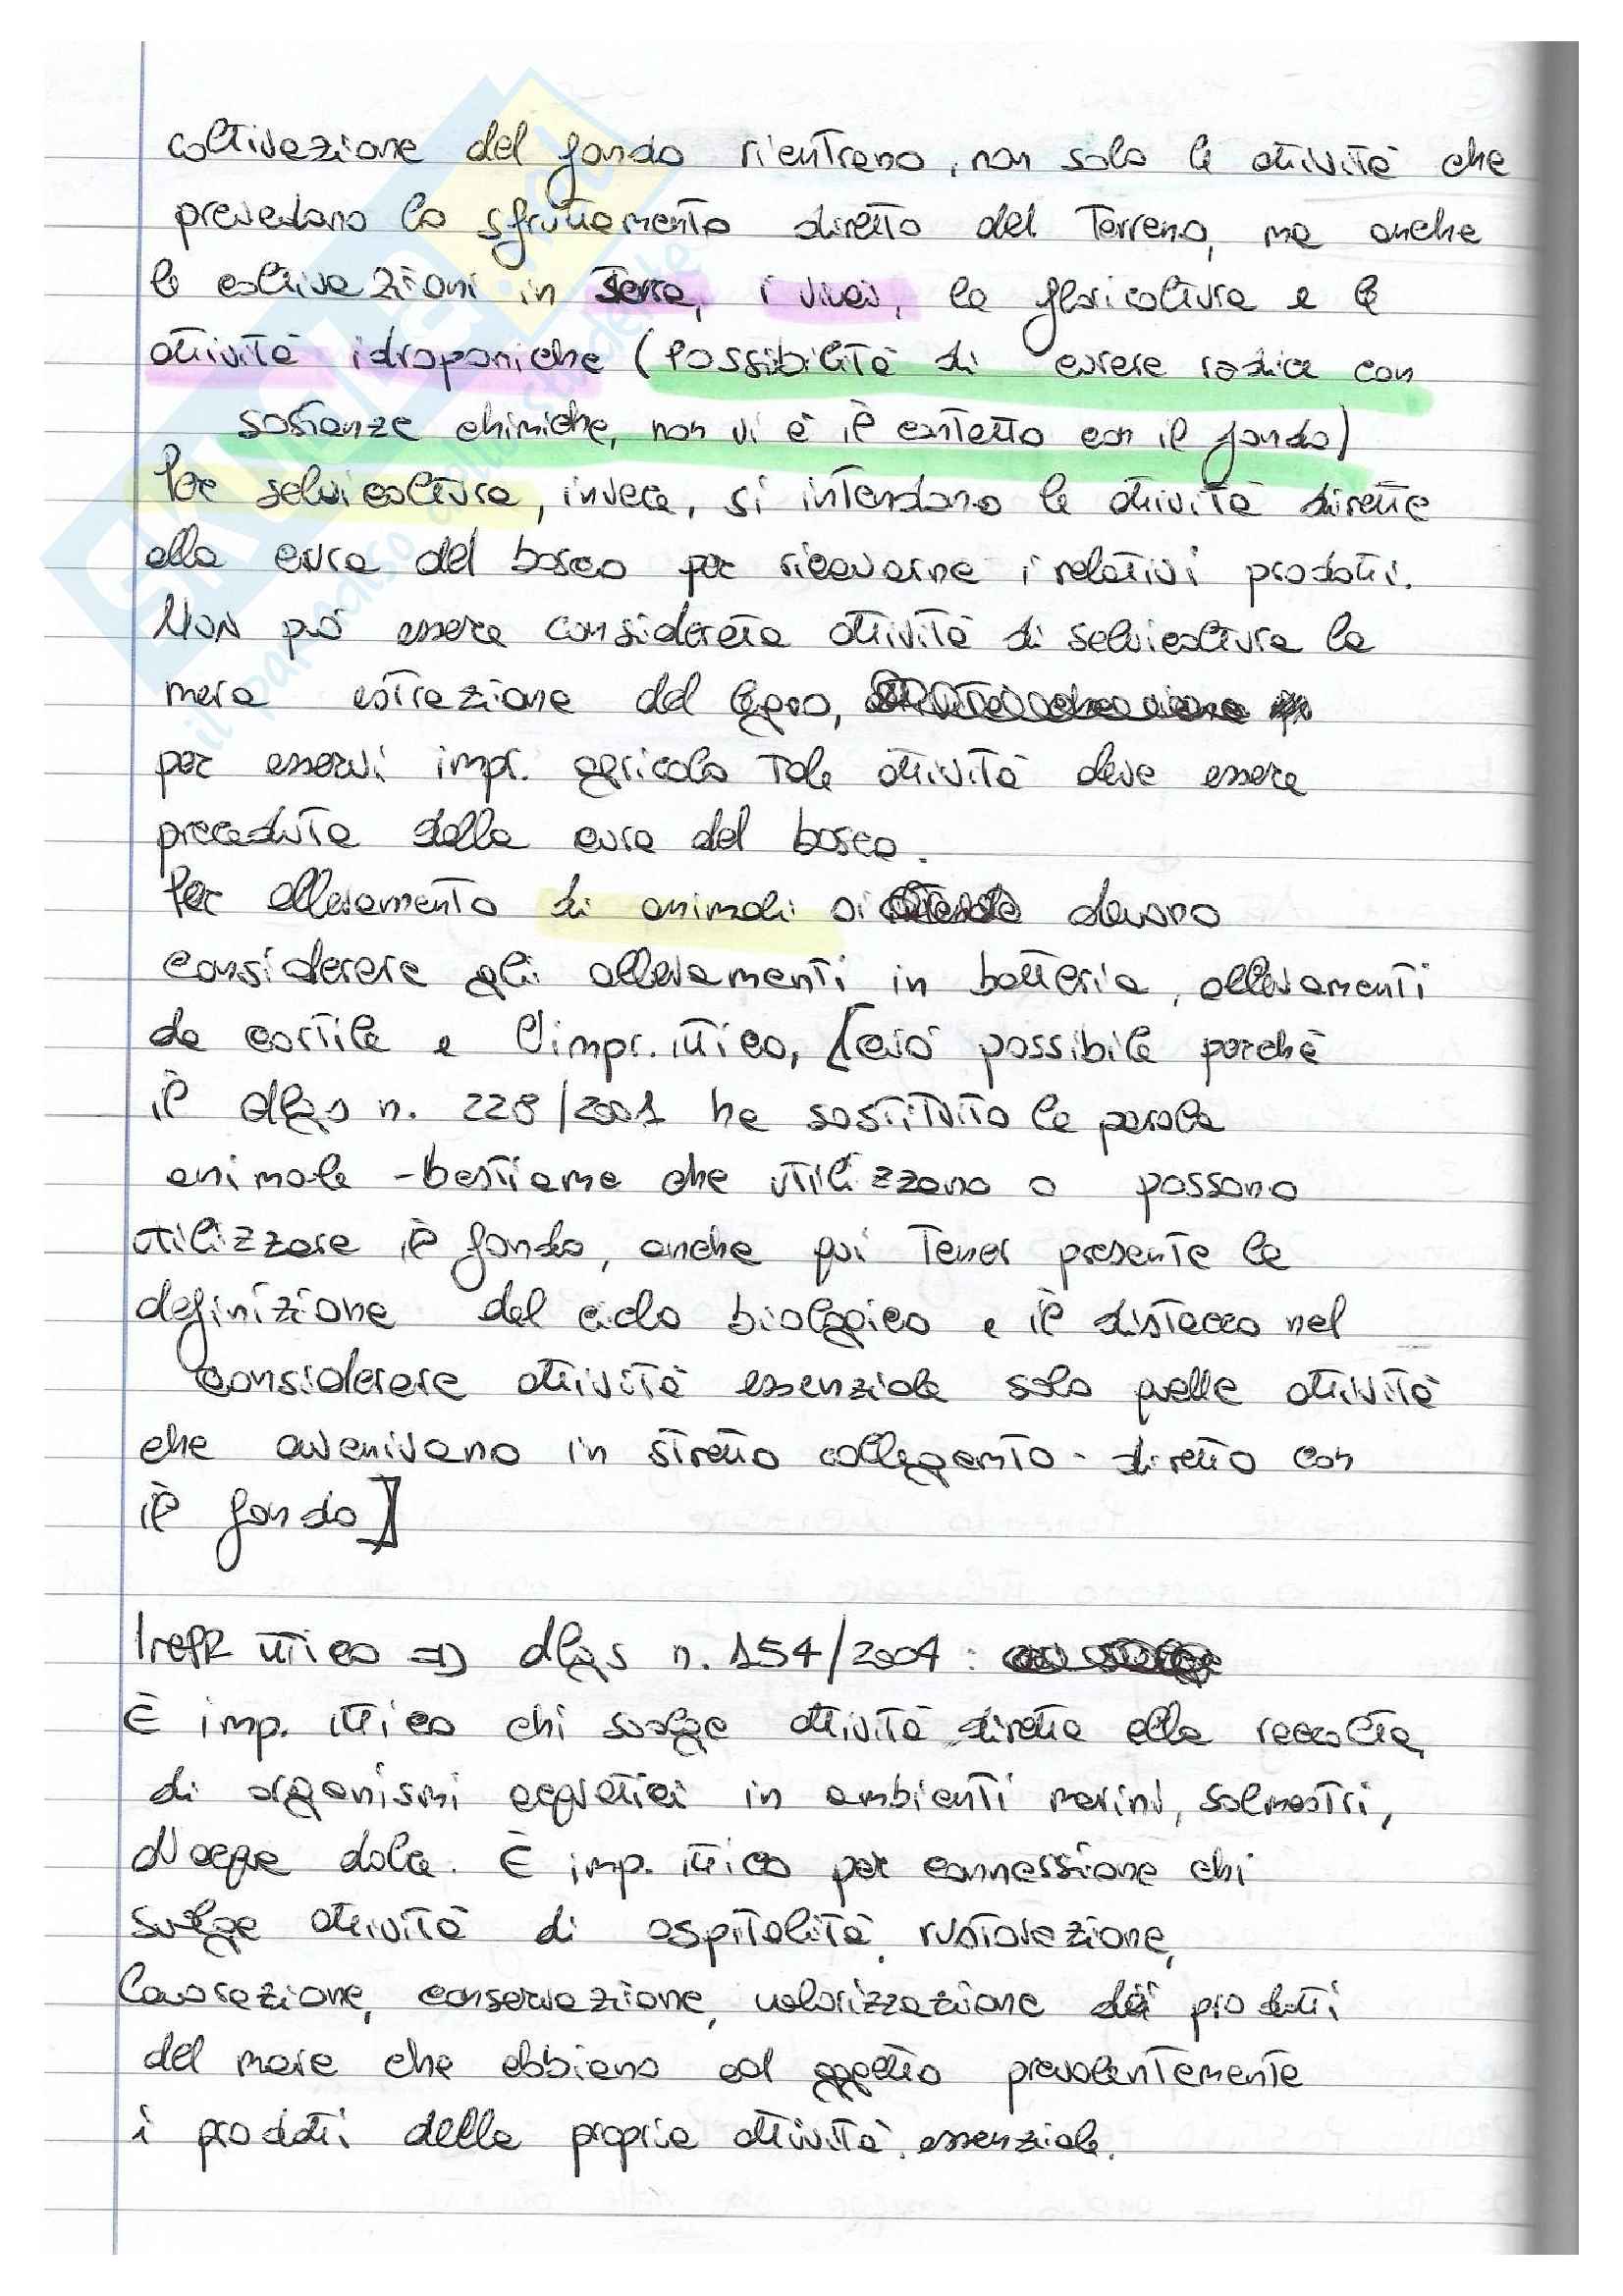 coltivazione del fondo rientrano, non solo le attività che
prevedano lo sfruttamento diretto del terreno, ma anche
le coltivazioni in serra, i vivai, la floricoltura e le
attività idroponiche (possibilità di essere radice con
sostanze chimiche, non vi è il contatto con il fondo)
Per selvicoltura, invece, si intendono le attività dirette
alla cura del bosco per ricavarne i relativi prodotti.
Non può essere considerata attività di selvicoltura la
mera estrazione del legno,
per esservi impr. agricolo tale attività deve essere
preceduta dalla cura del bosco.
Per allevamento di animali si devono
considerare gli allevamenti in batteria, allevamenti
da cortile e l'impr. ittico, [ciò possibile perchè
il dlgs n. 228/2001 ha sostituito la parola
animale - bestiame che utilizzano o possono
utilizzare il fondo, anche qui tener presente la
definizione del ciclo biologico e il distacco nel
considerare attività essenziale solo quelle attività
che avvenivano in stretto collegamto - diretto con
il fondo]
Impr ittico => dlgs n. 154/2004:
È imp. ittico chi svolge attività diretta alla raccolta
di organismi acquatici in ambienti marini, salmastri,
d'acqua dolce. È imp. ittico per connessione chi
svolge attività di ospitalità, ristorazione,
lavorazione, conservazione, valorizzazione dei prodotti
del mare che abbiano ad oggetto prevalentemente
i prodotti della propria attività essenziale.
SKUOLA.net
il paradiso dello studente